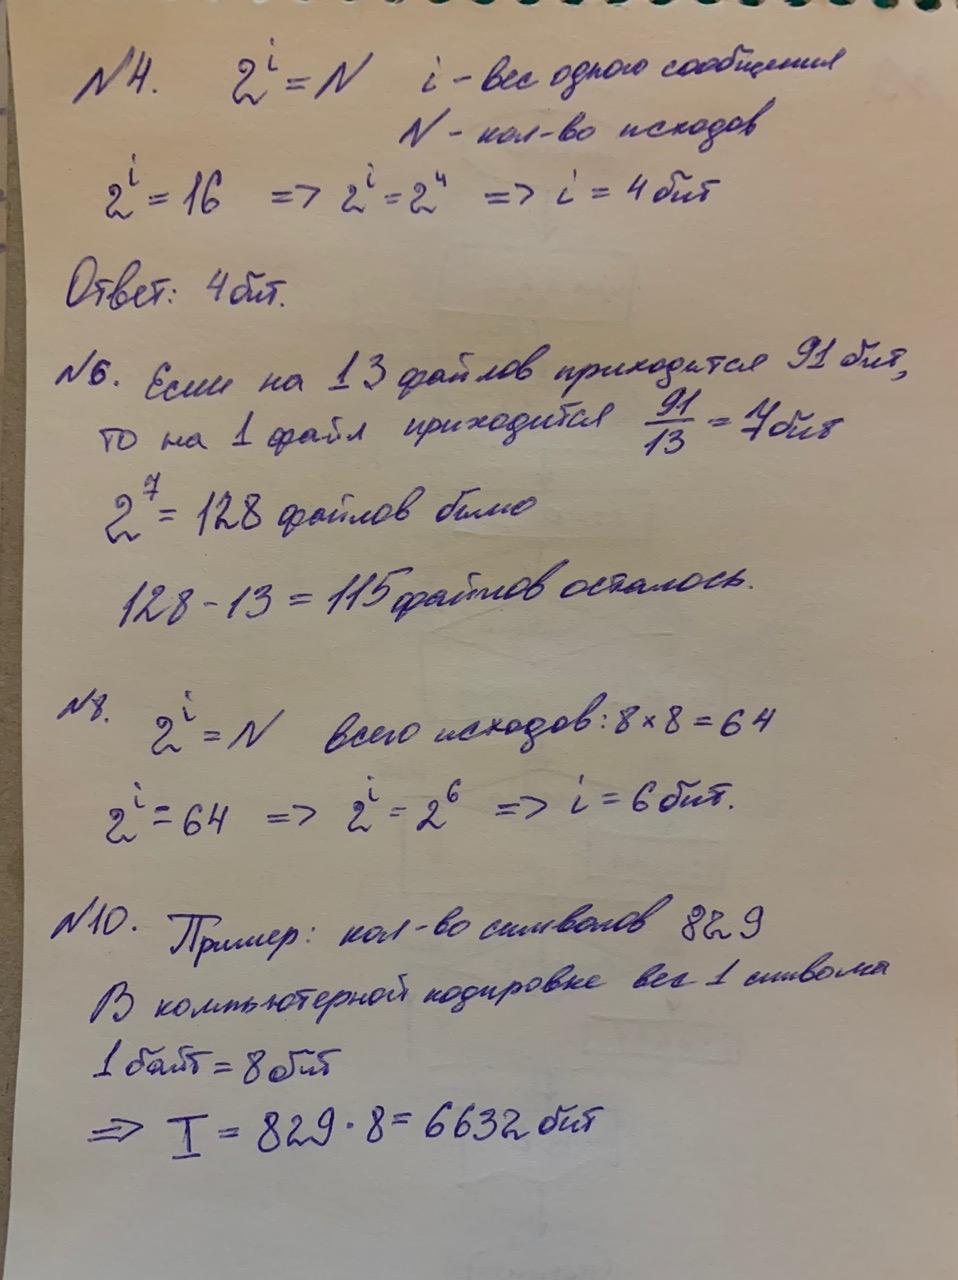 №4. 2^i = N i - вес одного сообщения
N - кол-во исходов
2^i = 16 => 2^i = 2^4 => i = 4 бит
Ответ: 4 бит.
№6. Если на 13 файлов приходится 91 бит,
то на 1 файл приходится 91/13 = 7 бит
2^7 = 128 файлов было
128 - 13 = 115 файлов осталось.
№8. 2^i = N всего исходов: 8 × 8 = 64
2^i = 64 => 2^i = 2^6 => i = 6 бит.
№10. Пример: кол-во символов 829
В компьютерной кодировке вес 1 символа
1 байт = 8 бит
=> I = 829 · 8 = 6632 бит